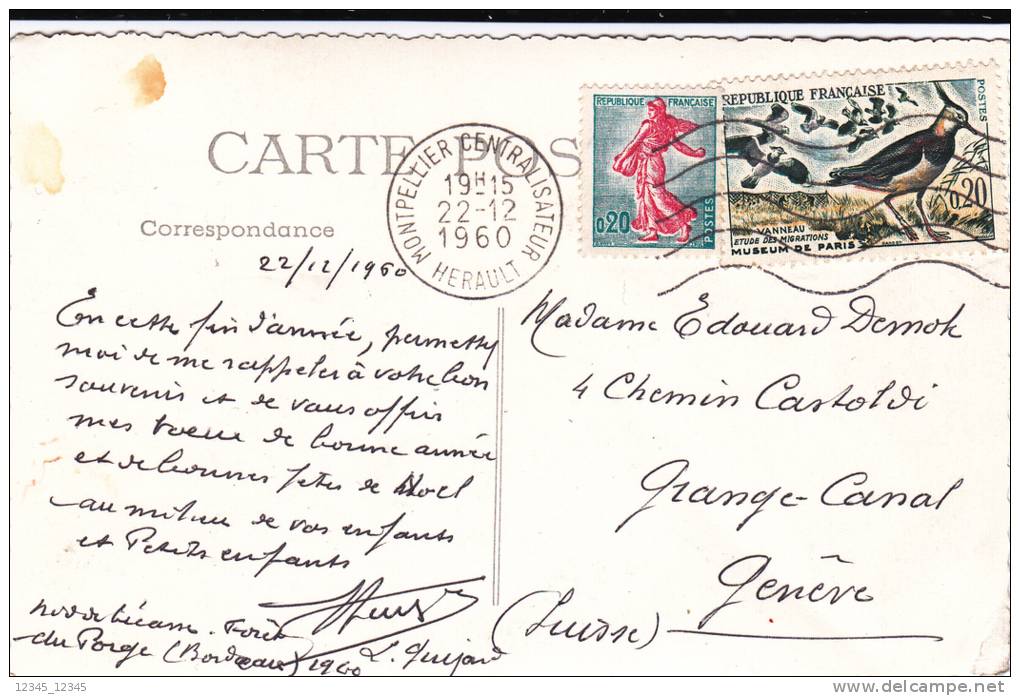 CARTE POS
Correspondance
22/12/1960
En cette fin d'année, permettez
moi de me rappeler à votre bon
souvenir et de vous offrir
mes voeux de bonne année
et de bonnes fêtes de Noel
au milieu de vos enfants
et Petits enfants
Forêt
du Porge (Bordeaux) 1960
MONTPELLIER CENTRALISATEUR
19H15
22-12
1960
HERAULT
REPUBLIQUE FRANÇAISE
0,20
POSTES
REPUBLIQUE FRANÇAISE
POSTES
0,20
VANNEAU
ETUDE DES MIGRATIONS
MUSEUM DE PARIS
Madame Edouard Demole
4 Chemin Castoldi
Grange-Canal
Genève
(Suisse)
12345_12345
delcampe.net